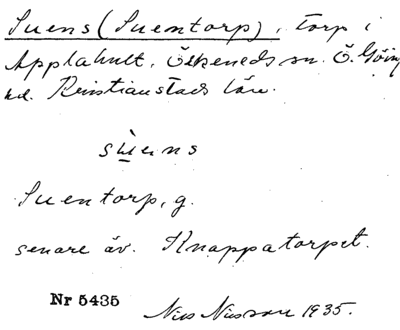 Suens (Suentorp), torp i
Applahult, Örkeneds sn. Ö. Göing
hd. Kristianstads län.
sùens
Suentorp, g.
senare äv. Knappatorpet.
Nr 5435
Nils Nilsson 1935.